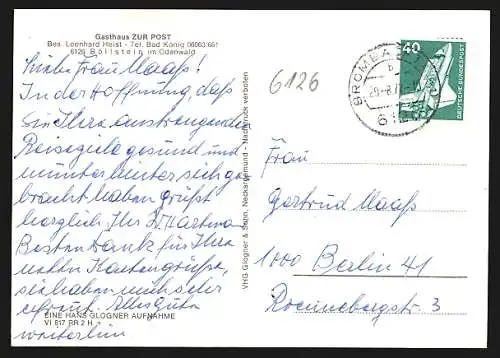 Gasthaus ZUR POST
Bes. Leonhard Heist - Tel. Bad König 06063/651
6126 Böllstein im Odenwald
Liebe Frau Maaß!
In der Hoffnung, daß
Sie Ihre anstrengenden
Reiseziele gesund und
munter hinter sich ge-
bracht haben grüßt
herzlich Ihr Hartman
Besten Dank für Ihre
netten Kartengrüße,
sie haben mich sehr
erfreut. Alles Gute
weiterhin
EINE HANS GLOGNER AUFNAHME
VI 817 RR 2 H
VHG Glogner & Sohn, Neckargemünd - Nachdruck verboten
6126
BROMBA
b
29.-8.7
612
40
DEUTSCHE BUNDESPOST
Frau
Gertrud Maaß
1000 Berlin 41
Rönnebergstr. 3